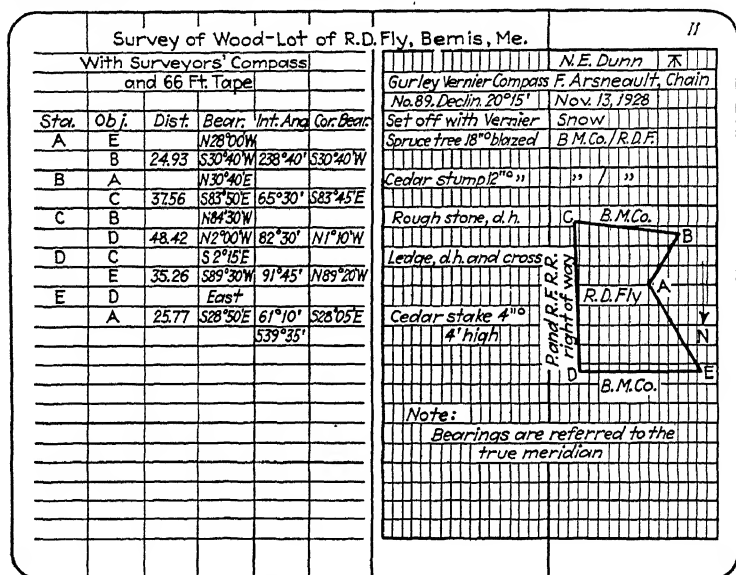 11
Survey of Wood-Lot of R.D. Fly, Bemis, Me.
With Surveyors' Compass
and 66 Ft. Tape
Sta. Obj. Dist. Bear. Int. Ang Cor. Bear.
A E N28°00'W
B 24.93 S30°40'W 238°40' S30°40'W
B A N30°40'E
C 37.56 S83°50'E 65°30' S83°45'E
C B N84°30'W
D 48.42 N2°00'W 82°30' N1°10'W
D C S2°15'E
E 35.26 S89°30'W 91°45' N89°20'W
E D East
A 25.77 S28°50'E 61°10' S28°05'E
539°35'
N.E. Dunn ⊼
Gurley Vernier Compass F. Arsneault, Chain
No.89. Declin. 20°15' Nov. 13, 1928
Set off with Vernier Snow
Spruce tree 18"° blazed B.M.Co./R.D.F.
Cedar stump 12"° " " / "
Rough stone, d.h.
Ledge, d.h. and cross
Cedar stake 4"°
4' high
C B.M.Co. B
A
R.D. Fly
P. and R.F. R.R.
right of way
N
D E
B.M.Co.
Note:
Bearings are referred to the
true meridian